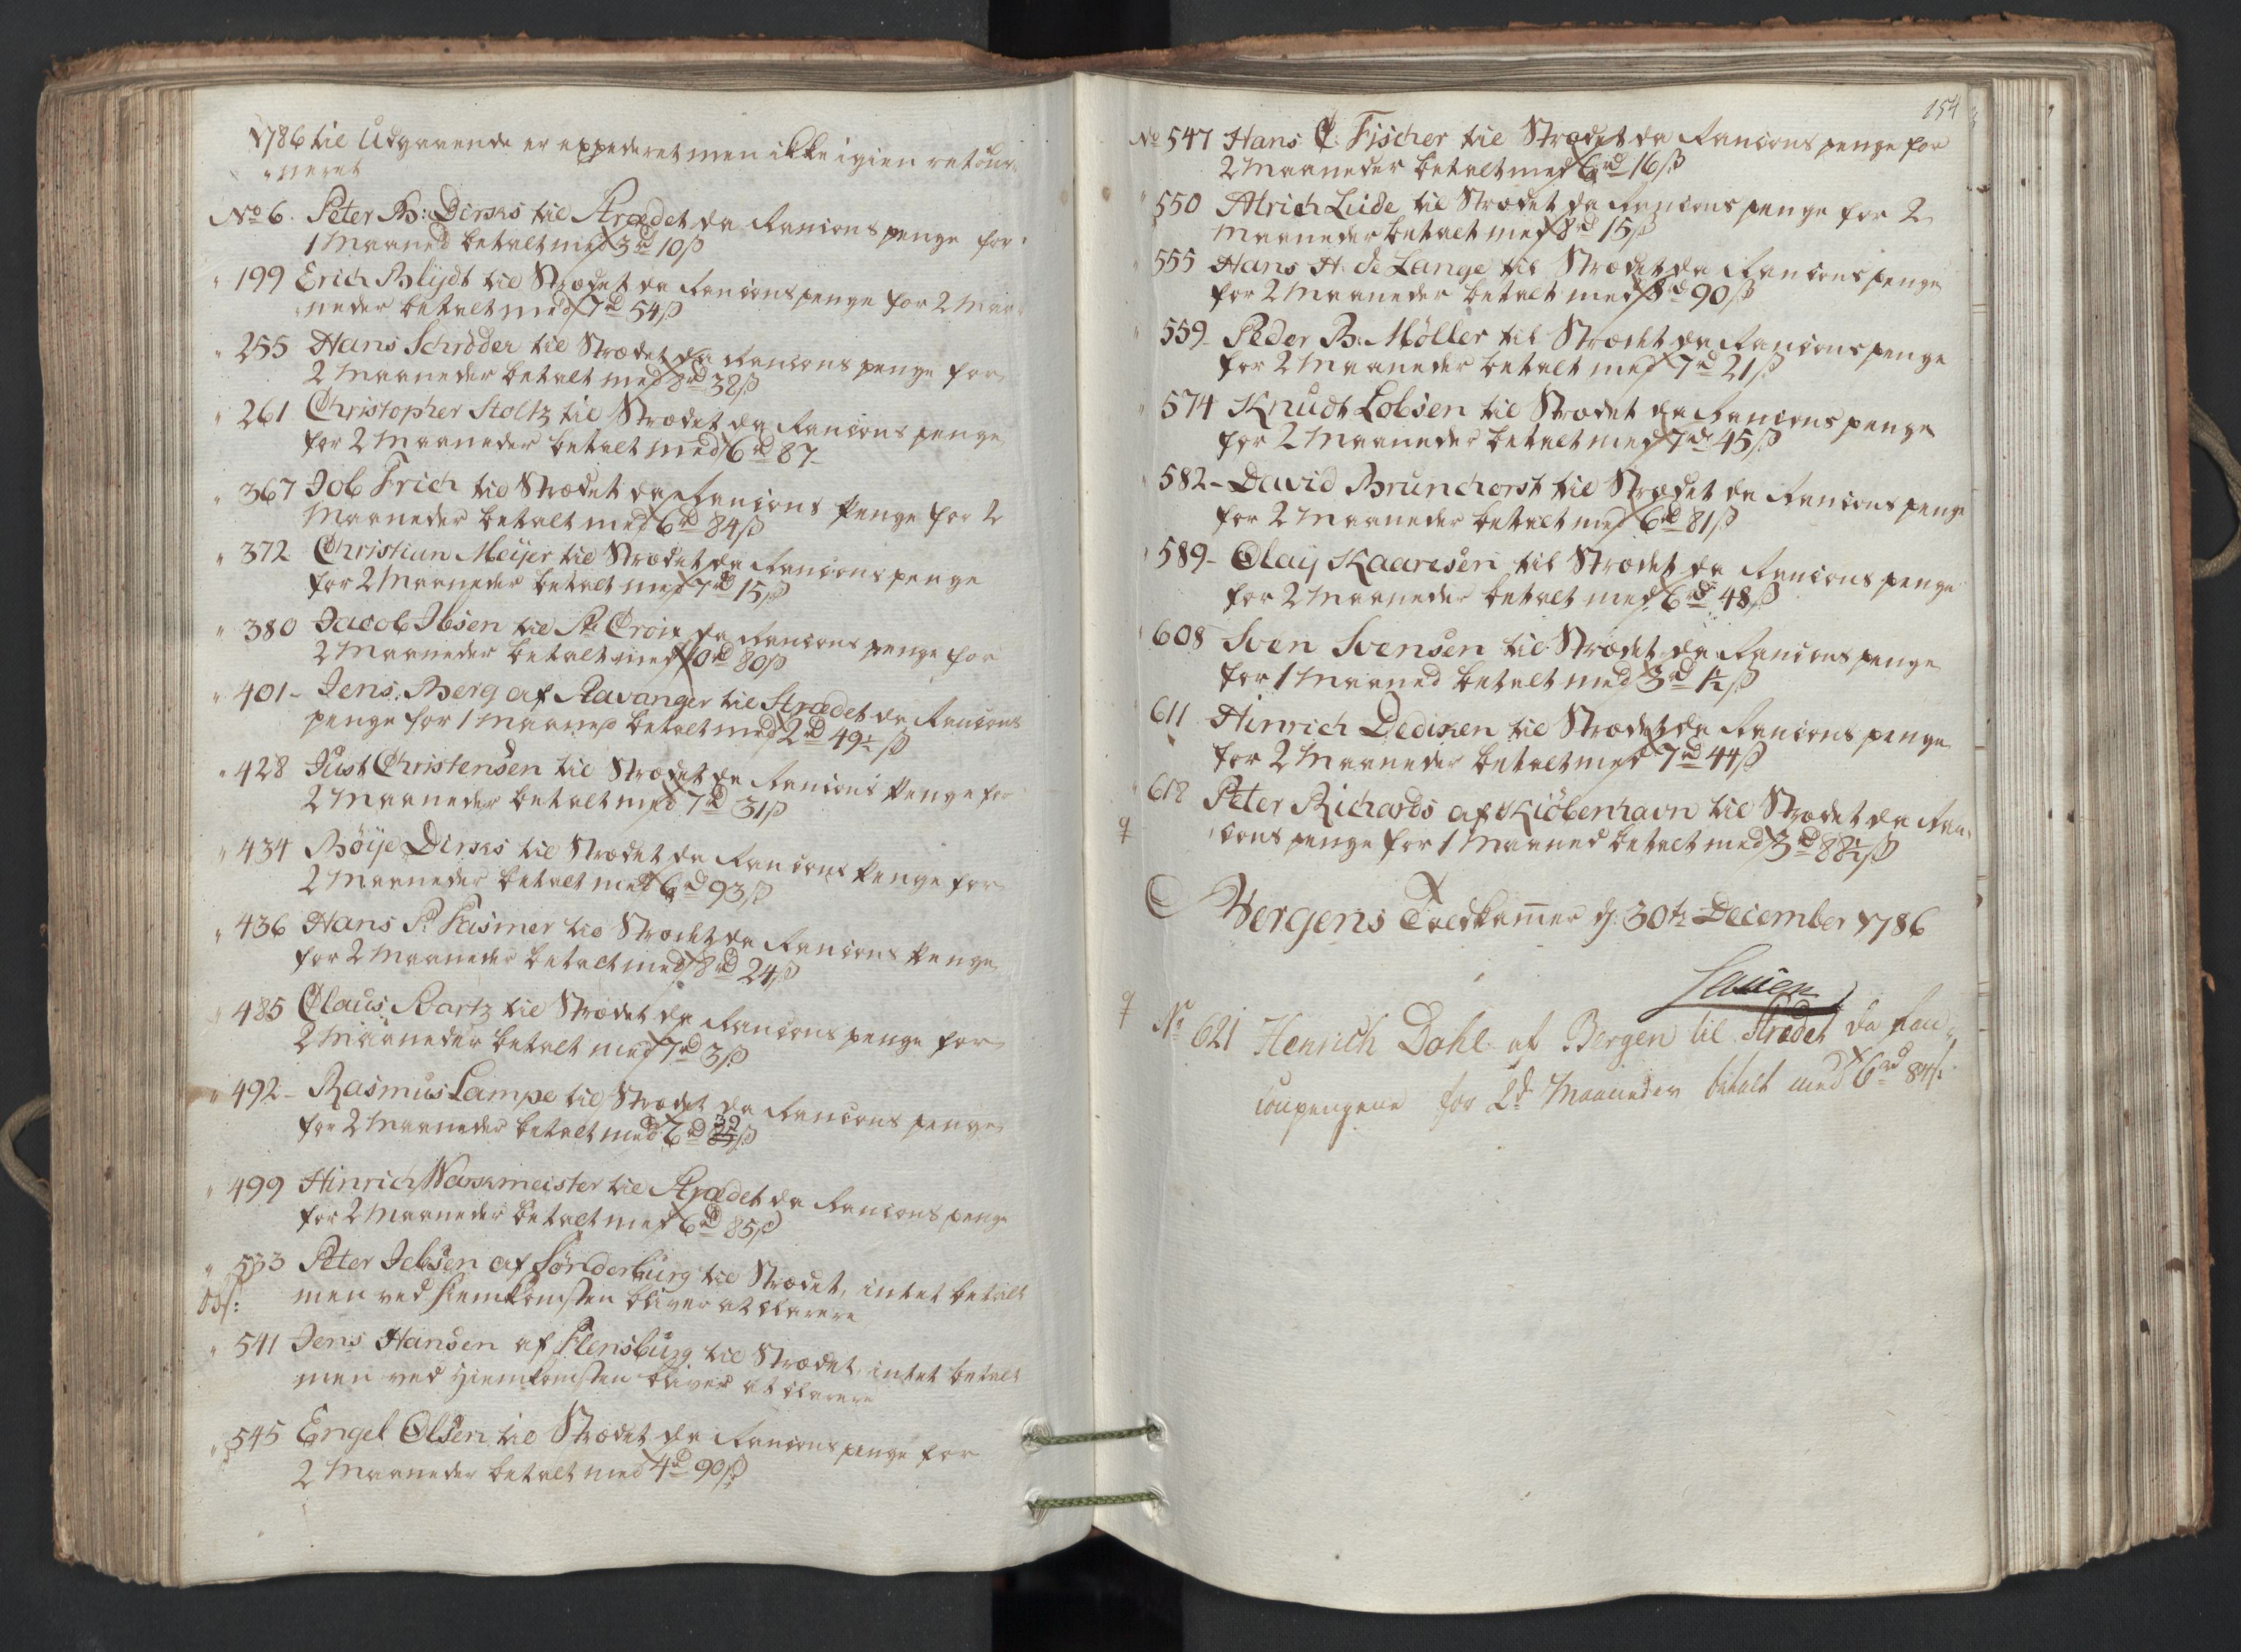 1786 til Udgaaende er expederet men ikke igien retour-
neret
No 6. Peter B: Dirks til Strædet da Rancons penge for
1 Maaned betalt med 3 rd 10 ß
" 199 Erich Blijdt til Strædet da Rancons penge for 2 Maa-
neder betalt med 7 rd 54 ß
" 255 Hans Schrøder til Strædet da Rancons penge for
2 Maaneder betalt med 8 rd 38 ß
" 261 Christopher Stoltz til Strædet da Rancons penge
for 2 Maaneder betalt med 6 rd 87-
" 367 Job Frich til Strædet da Rancons Penge for 2
Maaneder betalt med 6 rd 84 ß
" 372 Christian Meijer til Strædet da Rancons penge
for 2 Maaneder betalt med 7 rd 15 ß
" 380 Jacob Ibsen til St Croix da Rancons penge for
2 Maaneder betalt med 10 rd 80 ß
" 401- Jens Berg af Stavanger til Strædet da Rancons
penge for 1 Maaned betalt med 2 rd 49½ ß
" 428 Just Christensen til Strædet da Rancons Penge for
2 Maaneder betalt med 7 rd 31 ß
" 434 Bøije Dirks til Strædet da Rancons Penge for
2 Maaneder betalt med 6 rd 93 ß
" 436 Hans P. Fasmer til Strædet da Rancons Penge
for 2 Maaneder betalt med 8 rd 24 ß
" 485 Claus Bartz til Strædet da Rancons penge for
2 Maaneder betalt med 7 rd 3 ß
" 492- Rasmus Lampe til Strædet da Rancons penge
for 2 Maaneder betalt med 6 rd 39 ß
" 499 Hinrich Waskmeister til Strædet da Rancons penge
for 2 Maaneder betalt med 6 rd 85 ß
" 533 Peter Jebsen af Sønderburg til Strædet, intet betalt
Obs: men ved Hiemkomsten bliver at clarere
" 541 Jens Hansen af Flensburg til Strædet, intet betalt
men ved Hiemkomsten bliver at clarere
" 545 Engel Olsen til Strædet da Rancons penge for
2 Maaneder betalt med 4 rd 90 ß
154
No 547 Hans C: Fischer til Strædet da Rancons penge for
2 Maaneder betalt med 6 rd 16 ß
" 550 Alrich Lude til Strædet da Rancons penge for 2
Maaneder betalt med 8 rd 15 ß
" 555 Hans H. de Lange til Strædet da Rancons penge
for 2 Maaneder betalt med 8 rd 90 ß
" 559- Peder B. Møller til Strædet da Rancons penge
for 2 Maaneder betalt med 7 rd 21 ß
" 574 Knudt Lobsen til Strædet da Rancons penge
for 2 Maaneder betalt med 7 rd 45 ß
" 582- David Brunchorst til Strædet da Rancons penge
for 2 Maaneder betalt med 6 rd 81 ß
" 589- Olaij Kaaresen til Strædet da Rancons penge
for 2 Maaneder betalt med 6 rd 48 ß
" 608 Sven Svensen til Strædet da Rancons penge
for 1 Maaned betalt med 3 rd ½ ß
" 611 Hinrich Dediken til Strædet da Rancons penge
for 2 Maaneder betalt med 7 rd 44 ß
" 618 Peter Richards af Kiöbenhavn til Strædet da Ran-
cons penge for 1 Maaned betalt med 3 rd 88½ ß
Bergens Toldkammer d. 30te December 1786
No 621 Henrich Dahl af Bergen til Strædet da Ran-
conpengene for 2de Maaneder betalt med 6 rd 84 ß.